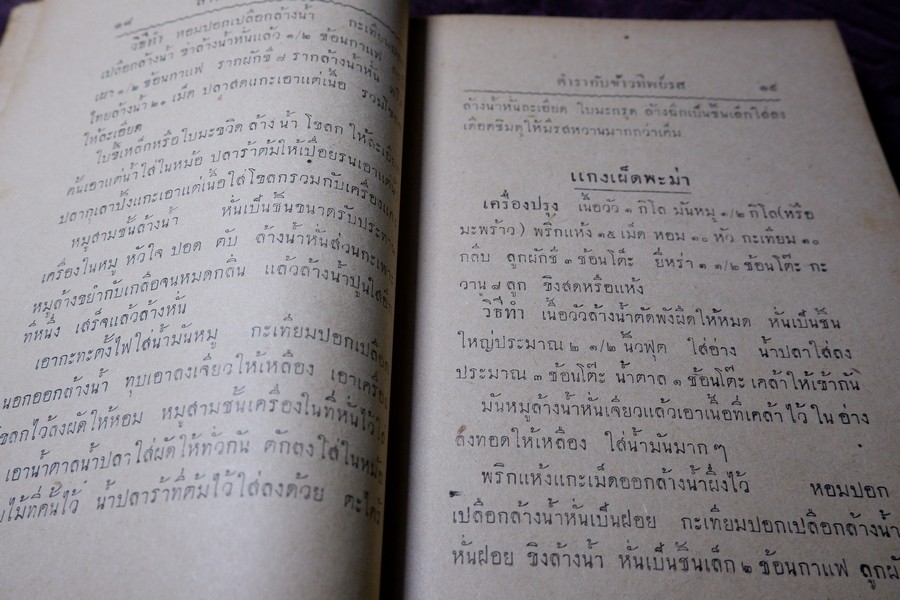 ๑๘
วิธีทำ หอมปอกเปลือกล้างน้ำ กะเทียม
เปลือกล้างน้ำ ข่าล้างน้ำหั่นแล้ว ๑/๒ ช้อนกาแฟ
เผา ๑/๒ ช้อนกาแฟ รากผักชี ๗ รากล้างน้ำหั่น
ไทยล้างน้ำ ๒๑ เม็ด ปลาสดแกะเอาแต่เนื้อ
ให้ละเอียด
ใบขี้เหล็กหรือใบมะขวิด ล้างน้ำ โขลก ให้ละเอียด
คั้นเอาแต่น้ำใส่ในหม้อ ปลาร้าต้มให้เปื่อยรนเอาแต่น้ำ
ปลากุเลาปิ้งแกะเอาแต่เนื้อใส่โขลกรวมกับเครื่องแกง
หมูสามชั้นล้างน้ำ หั่นเป็นชิ้นขนาดรับประทาน
เครื่องในหมู หัวใจ ปอด ตับ ล้างน้ำหั่นส่วนกะเพาะ
หมูล้างขยำกับเกลือจนหมดกลิ่น แล้วล้างน้ำปูนใส
ที่หนึ่ง เสร็จแล้วล้างหั่น
เอากะทะตั้งไฟใส่น้ำมันหมู กะเทียมปอกเปลือก
นอกออกล้างน้ำ ทุบเอาลงเจียวให้เหลือง เอาเครื่อง
โขลกไว้ลงผัดให้หอม หมูสามชั้นเครื่องในที่หั่นไว้ใส่
เอาน้ำตาลน้ำปลาใส่ผัดให้ทั่วกัน ตักลงใส่ในหม้อ
ใบไม้ที่คั้นไว้ น้ำปลาร้าที่ต้มไว้ใส่ลงด้วย ตะไคร้
ตำรากับข้าวทิพย์รส ๑๙
ล้างน้ำหั่นละเอียด ใบมะกรูด ล้างฉีกเป็นชิ้นเล็กใส่ลง
เดือดชิมดูให้มีรสหวานมากกว่าเค็ม
แกงเผ็ดพะม่า
เครื่องปรุง เนื้อวัว ๑ กิโล มันหมู ๑/๒ กิโล (หรือ
มะพร้าว) พริกแห้ง ๑๕ เม็ด หอม ๑๐ หัว กะเทียม ๑๐
กลีบ ลูกผักชี ๓ ช้อนโต๊ะ ยี่หร่า ๑ ๑/๒ ช้อนโต๊ะ กะ
วาน ๘ ลูก ขิงสดหรือแห้ง
วิธีทำ เนื้อวัวล้างน้ำตัดพังผืดให้หมด หั่นเป็นชิ้น
ใหญ่ประมาณ ๒ ๑/๒ นิ้วฟุต ใส่อ่าง น้ำปลาใส่ลง
ประมาณ ๓ ช้อนโต๊ะ น้ำตาล ๑ ช้อนโต๊ะ เคล้าให้เข้ากัน
มันหมูล้างน้ำหั่นเจียวแล้วเอาเนื้อที่เคล้าไว้ ใน อ่าง
ลงทอดให้เหลือง ใส่น้ำมันมาก ๆ
พริกแห้งแกะเม็ดออกล้างน้ำผึ่งไว้ หอมปอก
เปลือกล้างน้ำหั่นเป็นฝอย กะเทียมปอกเปลือกล้างน้ำ
หั่นฝอย ขิงล้างน้ำ หั่นเป็นชิ้นเล็ก ๒ ช้อนกาแฟ ลูกผั